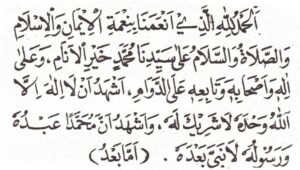 اَلْحَمْدُ لِلّٰهِ الَّذِيْ اَنْعَمَنَا بِنِعْمَةِ الْاِيْمَانِ وَالْاِسْلَامِ
وَالصَّلَاةُ وَالسَّلَامُ عَلٰى سَيِّدِنَا مُحَمَّدٍ خَيْرِ الْاَنَامِ، وَعَلٰى
اٰلِهِ وَاَصْحَابِهِ وَتَابِعِهِ عَلَى الدَّوَامِ، اَشْهَدُ اَنْ لَا اِلٰهَ اِلَّا
اللّٰهُ وَحْدَهُ لَا شَرِيْكَ لَهُ، وَاَشْهَدُ اَنَّ مُحَمَّدًا عَبْدُهُ
وَرَسُوْلُهُ لَا نَبِيَّ بَعْدَهُ . (اَمَّا بَعْدُ)